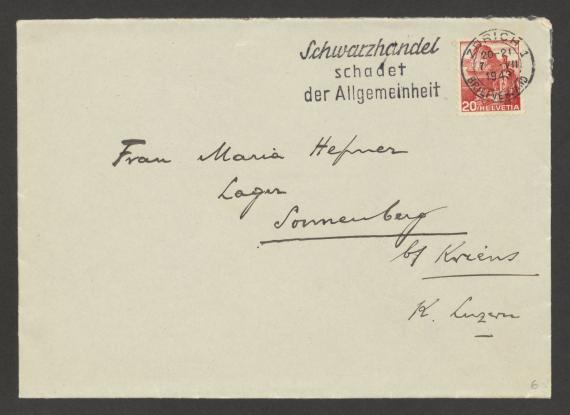 Schwarzhandel
schadet
der Allgemeinheit
ZÜRICH 1
20-21
VII
1943
BRIEFVERSAND
20 HELVETIA
Frau Maria Hefner
Lager
Sonnenberg
b/ Kriens
K. Luzern
6